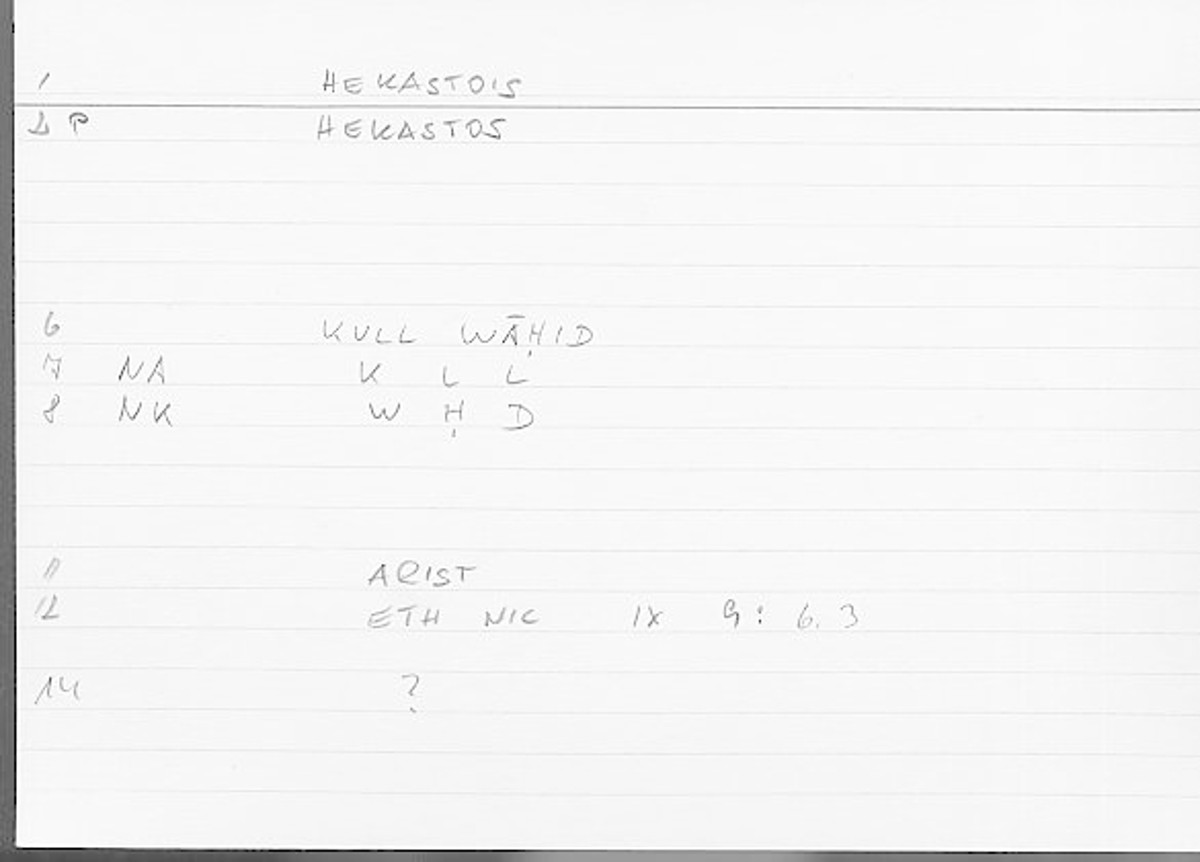 1 HEKASTOIS
2 P HEKASTOS
6 KULL WĀḤID
7 NA K L L
8 NK W Ḥ D
11 ARIST
12 ETH NIC IX 9: 6.3
14 ?